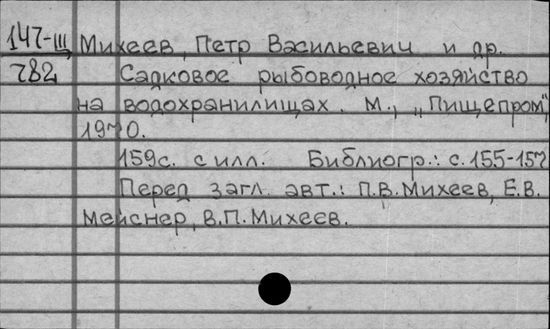 147-III Михеев, Петр Васильевич и др.
782 Садковое рыбоводное хозяйство
на водохранилищах. М., "Пищепром",
1970.
159с. с илл. Библиогр.: с. 155-157
Перед загл. авт.: П.В. Михеев, Е.В.
Мейснер, В.П. Михеев.